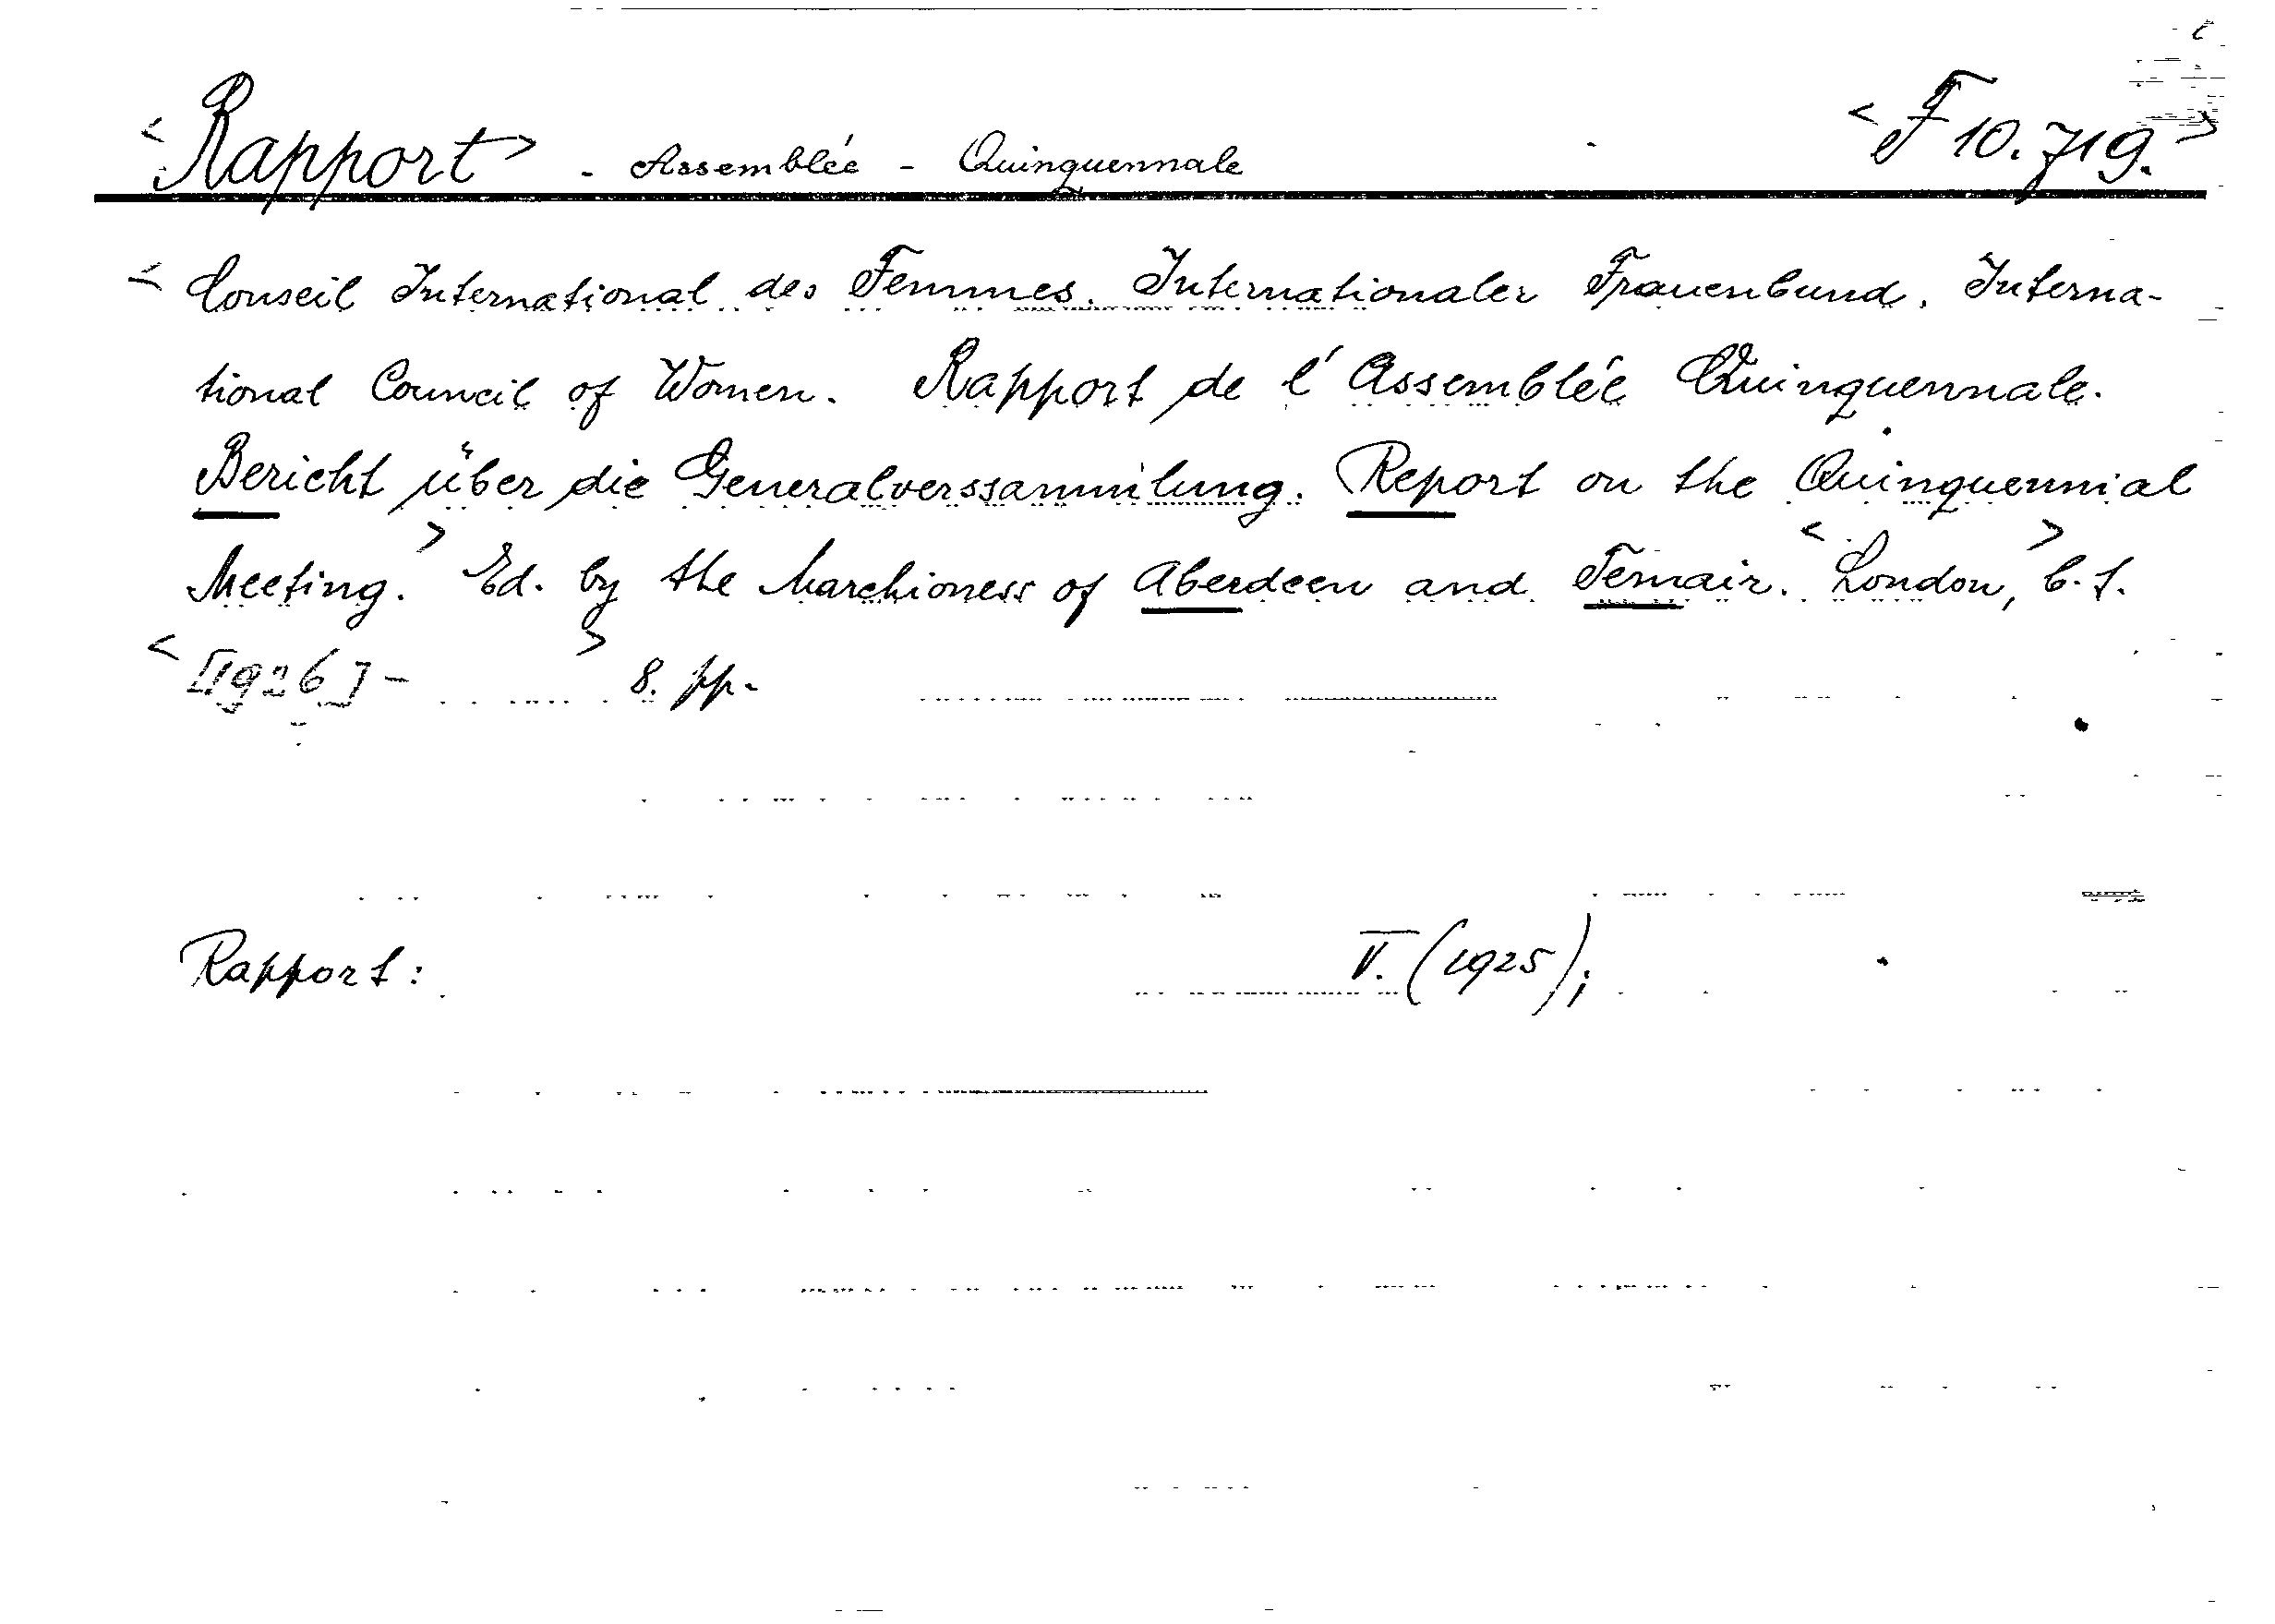 <Rapport> - Assemblée - Quinquennale <F 10.719.>
< Conseil International des Femmes. Internationaler Frauenbund. Interna-
tional Council of Women. Rapport de l'Assemblée Quinquennale.
Bericht über die Generalverssammlung. Report on the Quinquennial
Meeting.> Ed. by the Marchioness of Aberdeen and Temair. <London,> b. f.
<[1926] - > 8. pp.
Rapport: V. (1925);